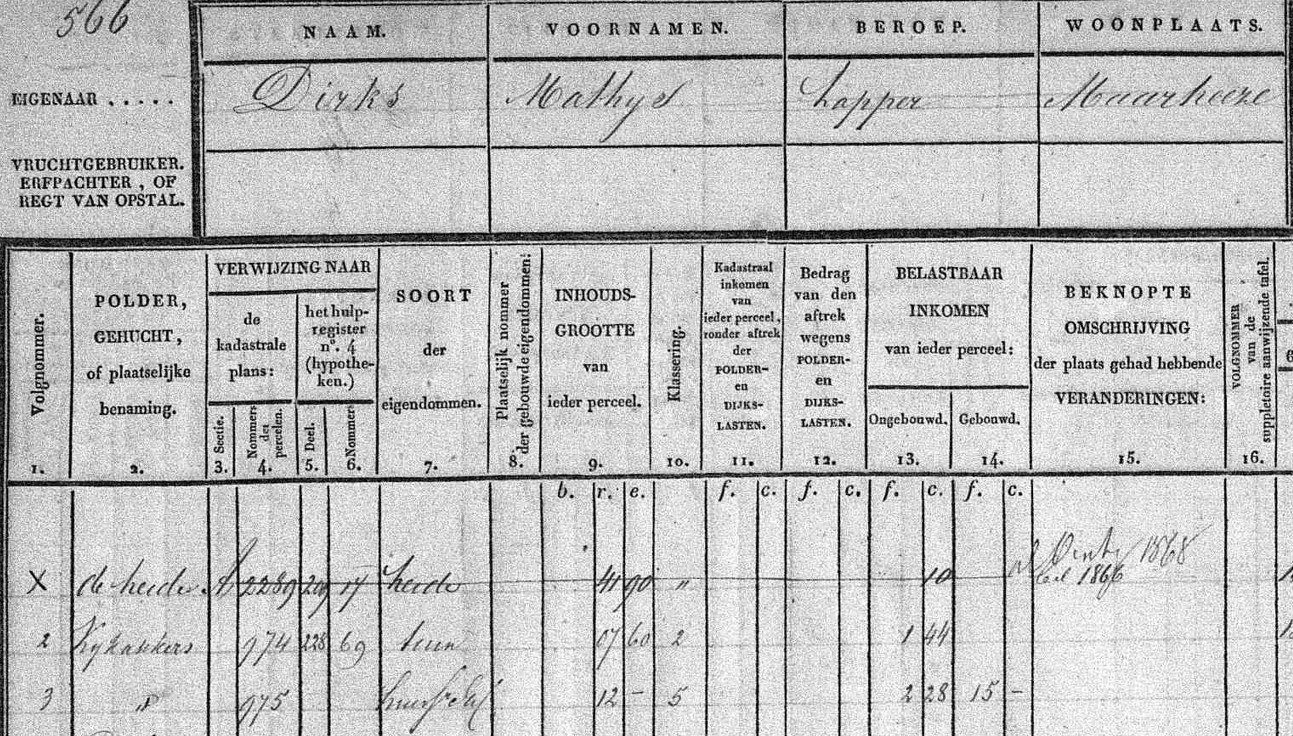 566
NAAM. VOORNAMEN. BEROEP. WOONPLAATS.
EIGENAAR ..... Dirks Mathys Lapper Maarheeze
VRUCHTGEBRUIKER.
ERFPACHTER, OF
REGT VAN OPSTAL.
Volgnommer.
1.
POLDER,
GEHUCHT,
of plaatselijke
benaming.
2.
VERWIJZING NAAR
de
kadastrale
plans:
Sectie.
3.
Nommers
der
percelen.
4.
het hulp-
register
n°. 4
(hypothe-
ken.)
Deel.
5.
Nommer
6.
SOORT
der
eigendommen.
7.
Plaatselijk nommer
der gebouwde eigendommen:
8.
INHOUDS-
GROOTTE
van
ieder perceel.
9.
Klassering.
10.
Kadastraal
inkomen
van
ieder perceel,
zonder aftrek
der
POLDER-
en
DIJKS-
LASTEN.
11.
Bedrag
van den
aftrek
wegens
POLDER-
en
DIJKS-
LASTEN.
12.
BELASTBAAR
INKOMEN
van ieder perceel:
Ongebouwd.
13.
Gebouwd.
14.
BEKNOPTE
OMSCHRIJVING
der plaats gehad hebbende
VERANDERINGEN:
15.
VOLGNOMMER
van de
suppletoire aanwijzende tafel.
16.
b. r. e. f. c. f. c. f. c. f. c.
1868
X de heide A 2289 17 heide 41 90 " 10 1866
2 974 228 69 tuin 07 60 2 1 44
3 " 975 12 - 5 2 28 15 -